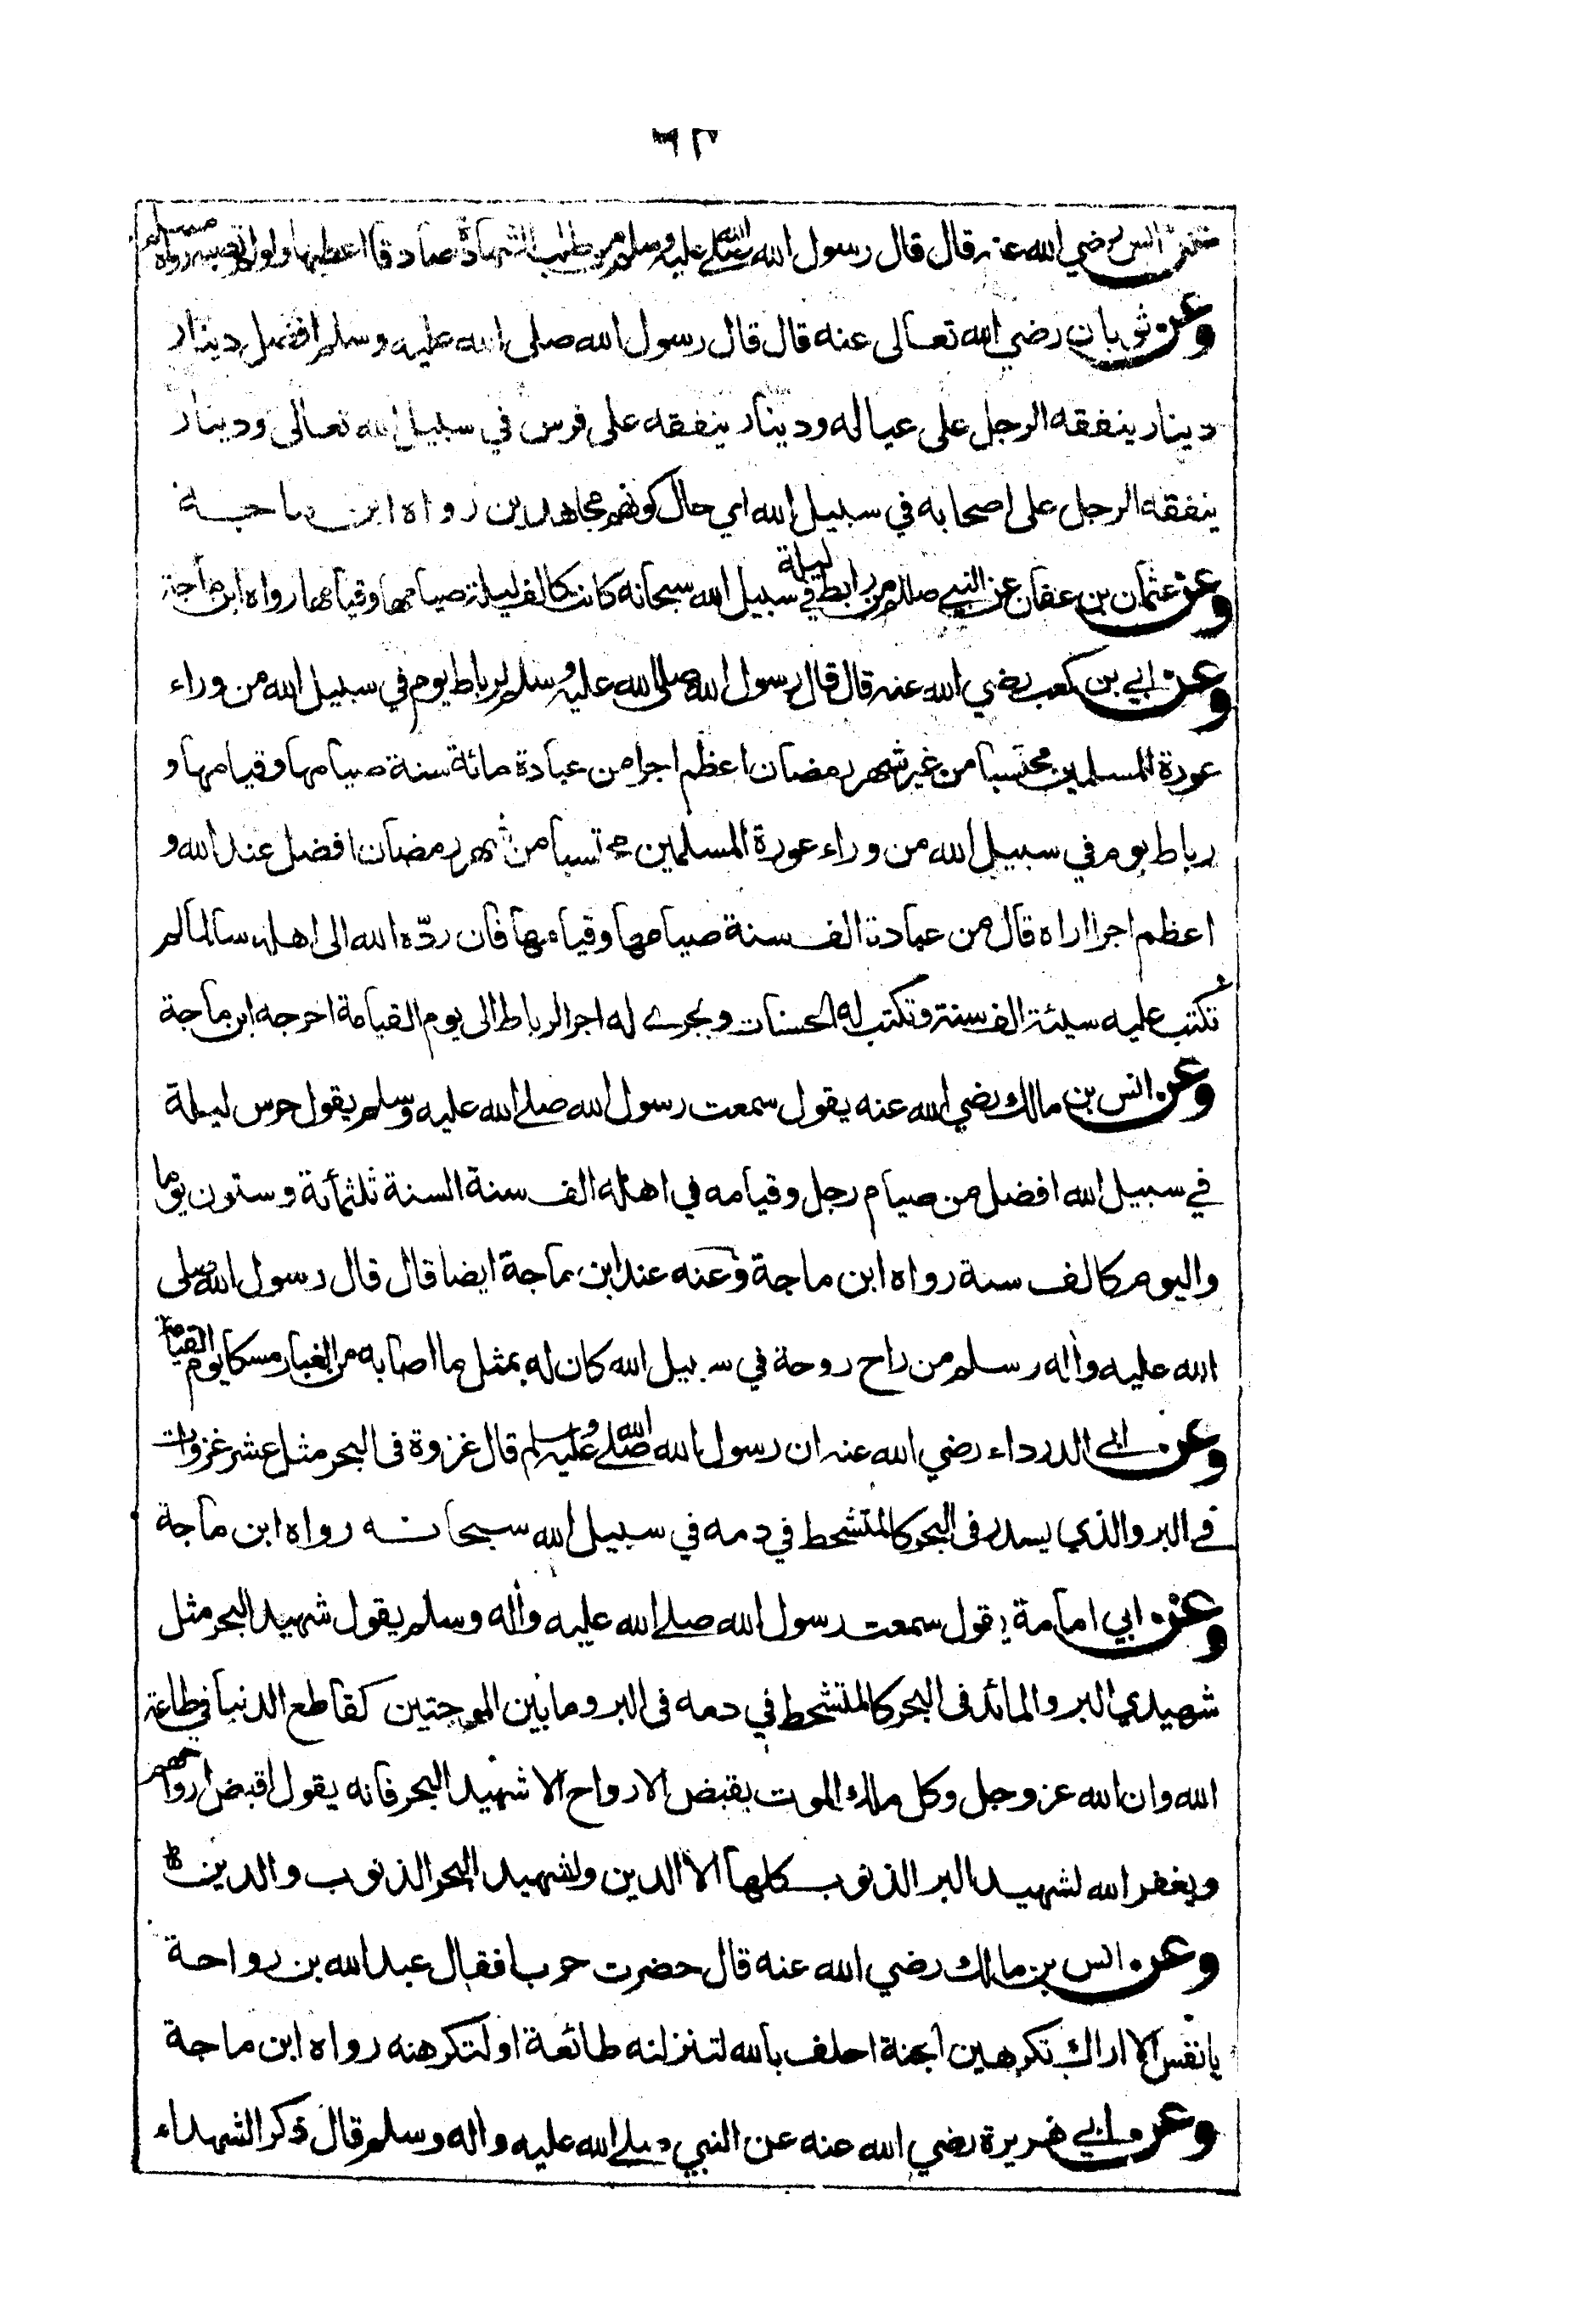 انس رضي الله عنه قال قال رسول الله صلى الله عليه وسلم من طلب الشهادة صادقا اعطيها ولو لم تصبه رواه مسلم
وعن ثوبان رضي الله تعالى عنه قال قال رسول الله صلى الله عليه وسلم افضل دينار
دينار ينفقه الرجل على عياله ودينار ينفقه على فرس في سبيل الله تعالى ودينار
ينفقه الرجل على اصحابه في سبيل الله اي حال كونهم مجاهدين رواه ابن ماجة
وعن عثمان بن عفان عن النبي صللم من رابط ليلة في سبيل الله سبحانه كانت كالف ليلة صيامها وقيامها رواه ابن ماجة
وعن ابي بن كعب رضي الله عنه قال قال رسول الله صلى الله عليه وسلم لرباط يوم في سبيل الله من وراء
عورة المسلمين محتسبا من غير شهر رمضان اعظم اجرا من عبادة مائة سنة صيامها وقيامها و
رباط يوم في سبيل الله من وراء عورة المسلمين محتسبا من شهر رمضان افضل عند الله و
اعظم اجرا اراه قال من عبادة الف سنة صيامها وقيامها فان ردّه الله الى اهله سالما لم
تكتب عليه سيئة الف سنة وتكتب له الحسنات ويجرے له اجر الرباط الى يوم القيامة اخرجه ابن ماجة
وعن انس بن مالك رضي الله عنه يقول سمعت رسول الله صلے الله عليه وسلم يقول حرس ليلة
في سبيل الله افضل من صيام رجل وقيامه في اهله الف سنة السنة ثلثمائة وستون يوما
واليوم كالف سنة رواه ابن ماجة وعنه عند ابن ماجة ايضا قال قال رسول الله صلى
الله عليه واله وسلم من راح روحة في سبيل الله كان له بمثل ما اصابه من الغبار مسكا يوم القيامة
وعن ابي الدرداء رضي الله عنه ان رسول الله صلے الله عليه وسلم قال غزوة فى البحر مثل عشر غزوات
في البر والذي يسدر فى البحر كالمتشحط في دمه في سبيل الله سبحانه رواه ابن ماجة
وعن ابي امامة يقول سمعت رسول الله صلے الله عليه واله وسلم يقول شهيد البحر مثل
شهيدي البر والمائد فى البحر كالمتشحط في دمه فى البر وما بين الموجتين كقاطع الدنيا في طاعة
الله وان الله عز وجل وكل ملك الموت بقبض الارواح الا شهيد البحر فانه يقول اقبض ارواحهم
ويغفر الله لشهيد البر الذنوب كلها الا الدين ولشهيد البحر الذنوب والدين
وعن انس بن مالك رضي الله عنه قال حضرت حربا فقال عبد الله بن رواحة
يا نفس الا اراك تكرهين الجنة احلف بالله لتنزلنه طائعة او لتكرهنه رواه ابن ماجة
وعن ابي هريرة رضي الله عنه عن النبي صلے الله عليه واله وسلم قال ذكر الشهداء